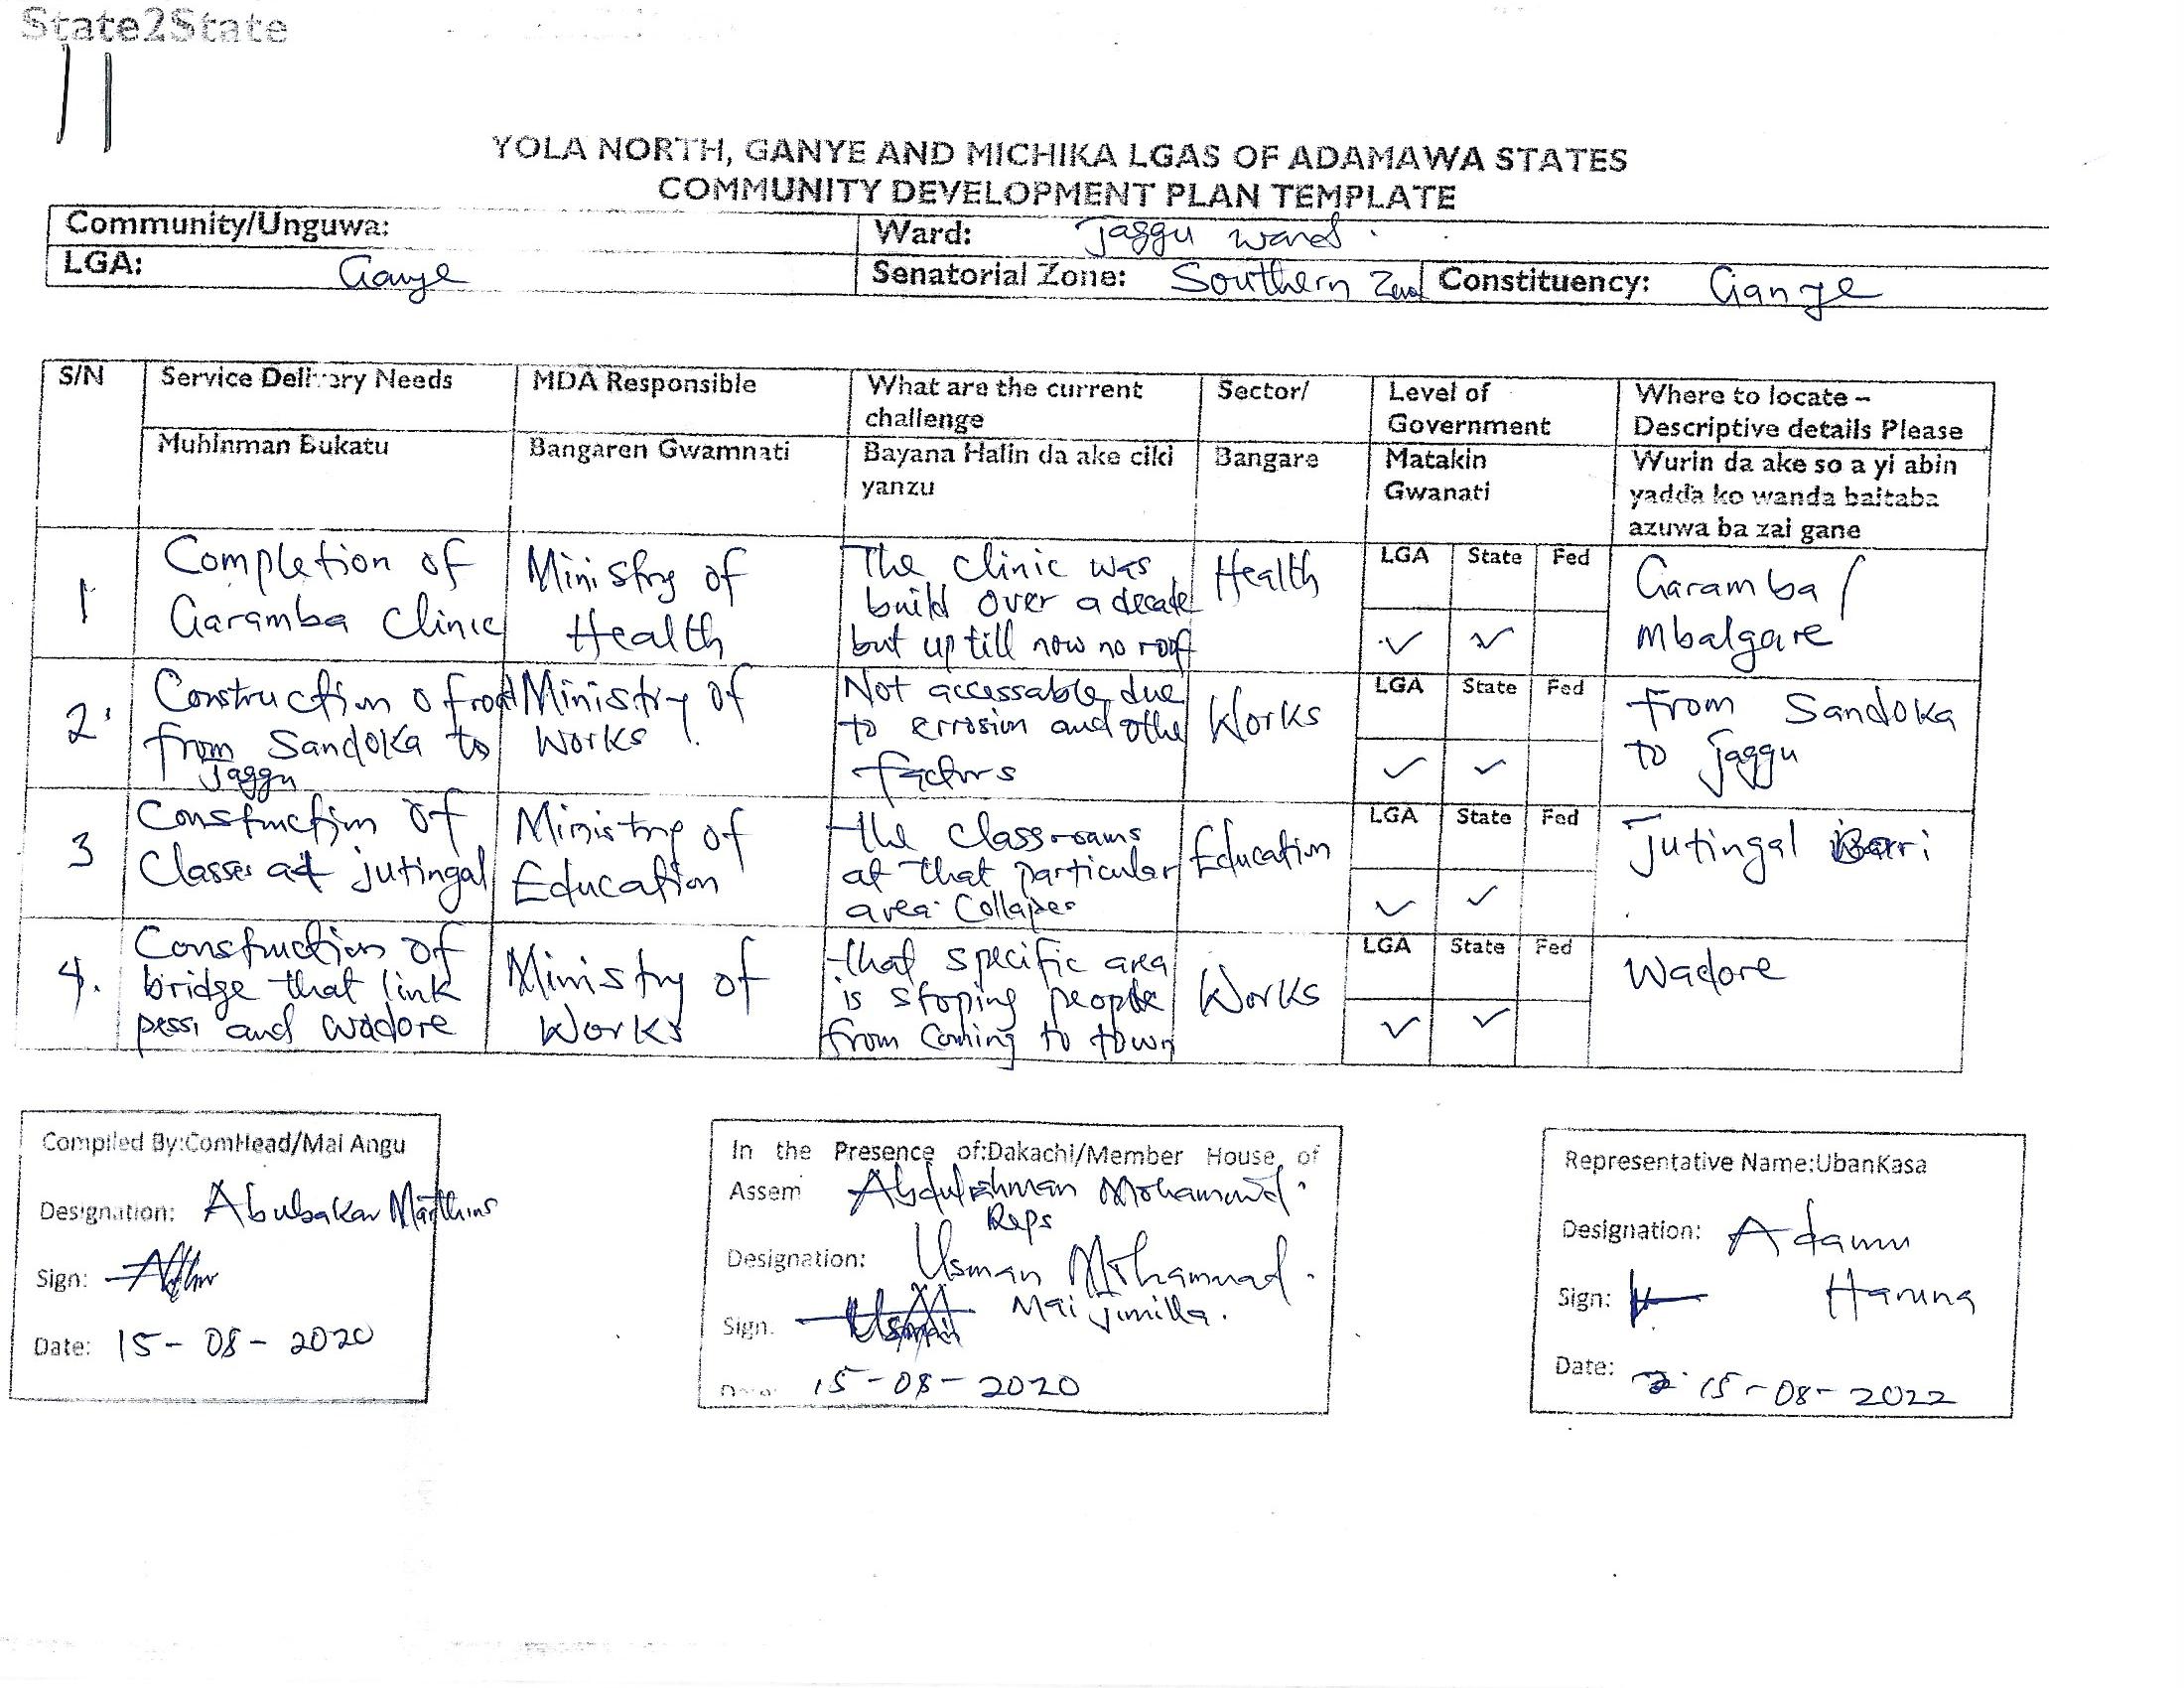 State2State
11
YOLA NORTH, GANYE AND MICHIKA LGAS OF ADAMAWA STATES
COMMUNITY DEVELOPMENT PLAN TEMPLATE
Community/Unguwa:
Ward: Jaggu ward
LGA: Ganye
Senatorial Zone: Southern Constituency: Ganye
S/N
Service Delivery Needs
MDA Responsible
What are the current
challenge
Sector/
Level of
Government
Where to locate –
Descriptive details Please
Muhinman Bukatu
Bangaren Gwamnati
Bayana Halin da ake ciki
yanzu
Bangare
Matakin
Gwanati
Wurin da ake so a yi abin
yadda ko wanda baitaba
azuwa ba zai gane
1
Completion of
Garamba Clinic
Ministry of
Health
The clinic was
build over a decade
but up till now no roof
Health
LGA State Fed
✓ ✓
Garamba /
Mbalgare
2
Construction of road
from Sandoka to
Jaggu
Ministry of
Works
Not accessable due
to errosion and othe
factors
Works
LGA State Fed
✓ ✓
From Sandoka
to Jaggu
3
Construction of
Classes at jutingal
Ministry of
Education
the classrooms
at that particular
area Collapes
Education
LGA State Fed
✓ ✓
Jutingal
4.
Construction of
bridge that link
pessi and wadore
Ministry of
Works
that specific area
is stoping people
from Coming to town
Works
LGA State Fed
✓ ✓
Wadore
Compiled By:ComHead/Mai Angu
Designation: Abubakar Marthins
Sign:
Date: 15-08-2020
In the Presence of:Dakachi/Member House of
Assem Abdulrahman Mohammed
Reps
Designation: Usman Mohammad.
Mai Jimilla.
Sign.
15-08-2020
Representative Name:UbanKasa
Designation: Adamu
Sign: Haruna
Date: 15-08-2022